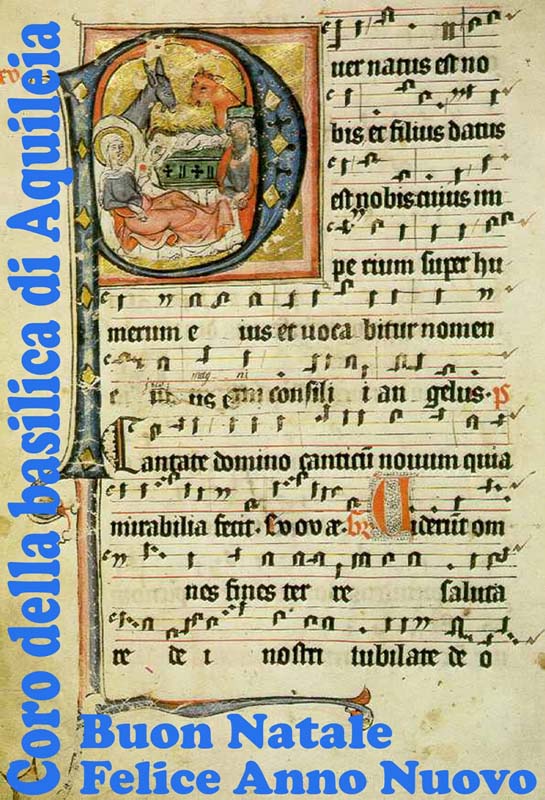 Coro della basilica di Aquileia
P uer natus est no
bis et filius datus
est nobis cuius im
pe rium super hu
merum e ius et uoca bitur nomen
e us consili i an gelus · p
Cantate domino canticū nouum quia
mirabilia fecit · Viderūt om
nes fines ter re saluta
re de i nostri iubilate de o
Buon Natale
Felice Anno Nuovo